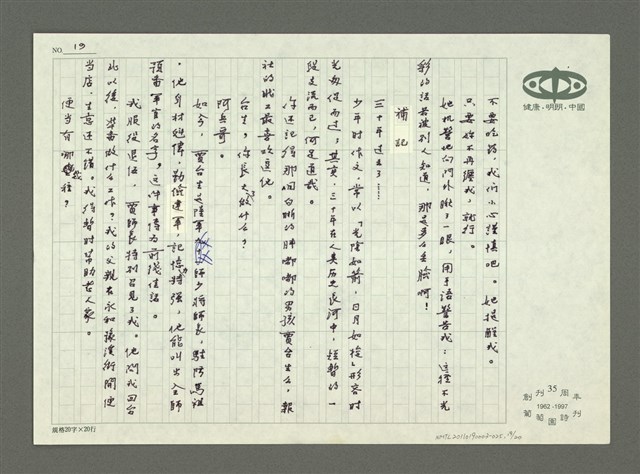 NO. 19
不要吃药,我們小心謹慎吧。她提醒我。
只要妳不再纏我,就行。
她机警地向門外瞅了一眼,用手語警告我:這種不光
彩的話若被別人知道,那是多么丟臉啊!
補記
三十年过去了……
少年时作文,常以「光陰如箭,日月如梭」形容时
光匆促而逝;其實,三十年在人类历史長河中,短暫的一
段支流而已,何足道哉。
你还記得那個白晰的肺嘟嘟的男孩賈台生么,報
社的職工最喜欢逗他。
台生,你長大做什么?
阿兵哥。
如今,賈台生是陸軍 師少将師長,駐防馬祖
。他身材魁偉,勤儉建軍,記憶力特強,他能叫出全師
預备軍官的名字,这件事傳为前綫佳話。
我服役退伍,賈師長特别召見了我。他問我回台
北以後,準备做什么工作?我的父親在永和環濱街開便
当店,生意还不錯。我得暫时帮助老人家。
便当有哪幾種?
規格20字×20行
健康·明朗·中國
創刊35周年
1962-1997
葡萄園詩刊